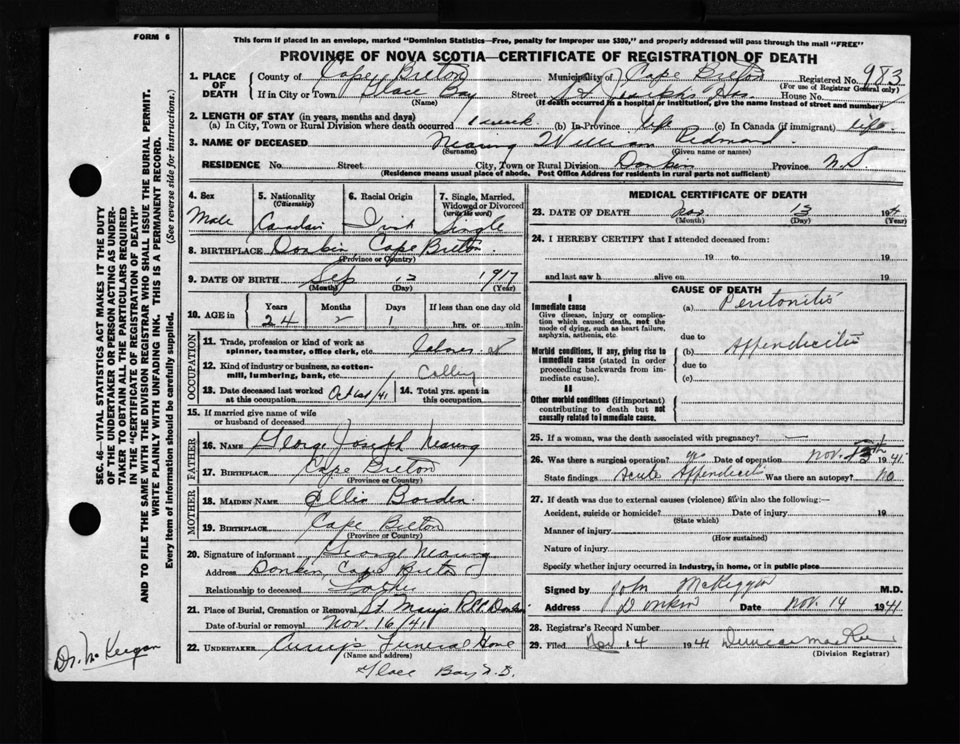 FORM 6
This form if placed in an envelope, marked "Dominion Statistics—Free, penalty for improper use $300," and properly addressed will pass through the mail "FREE"
PROVINCE OF NOVA SCOTIA—CERTIFICATE OF REGISTRATION OF DEATH
1. PLACE OF DEATH
County of Cape Breton Municipality of Cape Breton Registered No. 983
(For use of Registrar General only)
If in City or Town Glace Bay Street St Josephs Hos. House No.
(Name) (If death occurred in a hospital or institution, give the name instead of street and number)
2. LENGTH OF STAY (in years, months and days)
(a) In City, Town or Rural Division where death occurred 1 week (b) In Province life (c) In Canada (if immigrant) life
3. NAME OF DECEASED Nearing William Redmond
(Surname) (Given name or names)
RESIDENCE No. Street City, Town or Rural Division Donkin Province N.S
(Residence means usual place of abode. Post Office Address for residents in rural parts not sufficient)
4. Sex Male
5. Nationality (Citizenship) Canadian
6. Racial Origin Irish
7. Single, Married, Widowed or Divorced (write the word) Single
8. BIRTHPLACE Donkin Cape Breton
(Province or Country)
9. DATE OF BIRTH Sep 12 1917
(Month) (Day) (Year)
10. AGE in Years Months Days If less than one day old
24 2 1 hrs. or min.
OCCUPATION
11. Trade, profession or kind of work as spinner, teamster, office clerk, etc. Laborer
12. Kind of industry or business, as cotton-mill, lumbering, bank, etc.
13. Date deceased last worked at this occupation Oct 31st/41
14. Total yrs. spent in this occupation
15. If married give name of wife or husband of deceased
FATHER
16. NAME George Joseph Nearing
17. BIRTHPLACE Cape Breton
(Province or Country)
MOTHER
18. MAIDEN NAME Borden
19. BIRTHPLACE Cape Breton
(Province or Country)
20. Signature of informant George Nearing
Address Donkin Cape Breton
Relationship to deceased Father
21. Place of Burial, Cremation or Removal St. Marys Donkin
Date of burial or removal Nov. 16/41
22. UNDERTAKER Curry's Funeral Home
(Name and address)
Glace Bay N.S.
MEDICAL CERTIFICATE OF DEATH
23. DATE OF DEATH Nov 13 1941
(Month) (Day) (Year)
24. I HEREBY CERTIFY that I attended deceased from:
19 to 19
and last saw h alive on 19
CAUSE OF DEATH
I
Immediate cause
Give disease, injury or complication which caused death, not the mode of dying, such as heart failure, asphyxia, asthenia, etc
(a) Peritonitis
due to
Morbid conditions, if any, giving rise to immediate cause (stated in order proceeding backwards from immediate cause).
(b) Appendicitis
due to
(c)
II
Other morbid conditions (if important) contributing to death but not causally related to immediate cause.
25. If a woman, was the death associated with pregnancy? —
26. Was there a surgical operation? yes Date of operation Nov. 1941
State findings Acute Appendicitis Was there an autopsy? No
27. If death was due to external causes (violence) fill in also the following:—
Accident, suicide or homicide? Date of injury 19
(State which)
Manner of injury
(How sustained)
Nature of injury
Specify whether injury occurred in industry, in home, or in public place
Signed by John McKeggan M.D.
Address Donkin Date Nov. 14 1941
28. Registrar's Record Number
29. Filed Nov 14 1941 Duncan
(Division Registrar)
SEC. 46—VITAL STATISTICS ACT MAKES IT THE DUTY
OF THE UNDERTAKER OR PERSON ACTING AS UNDER-
TAKER TO OBTAIN ALL THE PARTICULARS REQUIRED
IN THE "CERTIFICATE OF REGISTRATION OF DEATH"
AND TO FILE THE SAME WITH THE DIVISION REGISTRAR WHO SHALL ISSUE THE BURIAL PERMIT.
WRITE PLAINLY WITH UNFADING INK. THIS IS A PERMANENT RECORD.
Every item of information should be carefully supplied. (See reverse side for instructions.)
Dr. McKeegan